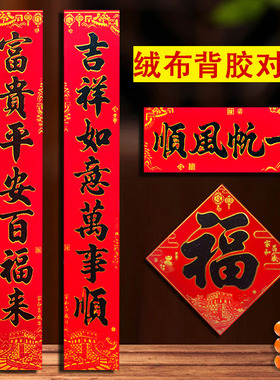 绒布背胶对
一帆風順
吉祥如意萬事順
富貴平安百福来
福